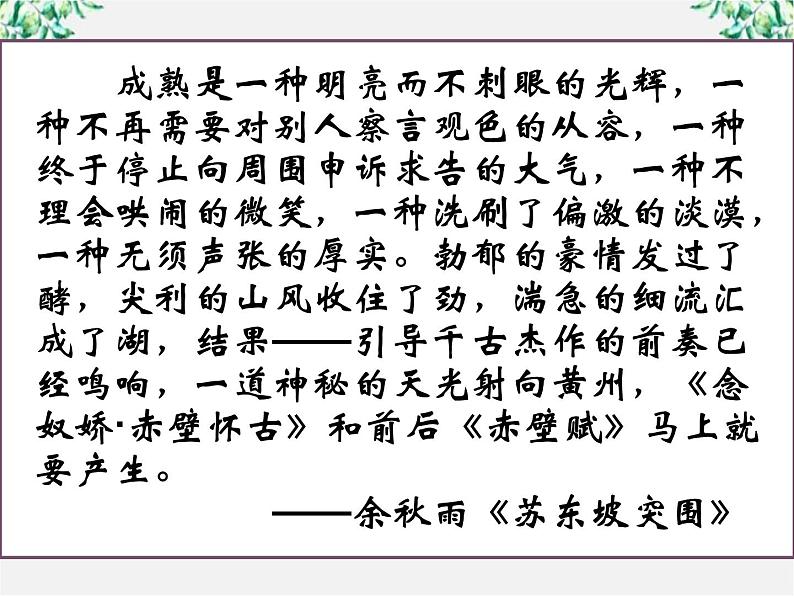 成熟是一种明亮而不刺眼的光辉，一
种不再需要对别人察言观色的从容，一种
终于停止向周围申诉求告的大气，一种不
理会哄闹的微笑，一种洗刷了偏激的淡漠，
一种无须声张的厚实。勃郁的豪情发过了
酵，尖利的山风收住了劲，湍急的细流汇
成了湖，结果——引导千古杰作的前奏已
经鸣响，一道神秘的天光射向黄州，《念
奴娇·赤壁怀古》和前后《赤壁赋》马上就
要产生。
——余秋雨《苏东坡突围》